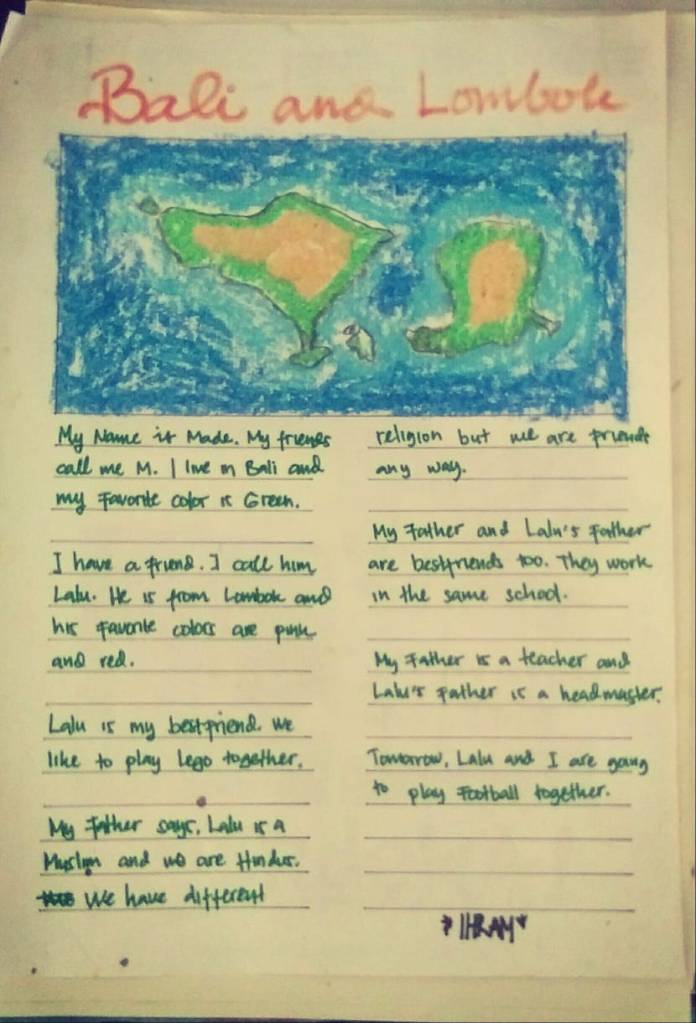 Bali and Lombok
My Name is Made. My friends
call me M. I live in Bali and
my Favorite color is Green.
I have a friend. I call him
Lalu. He is from Lombok and
his Favorite colors are pink
and red.
Lalu is my bestfriend. We
like to play Lego together.
My Father says, Lalu is a
Muslim and we are Hindus.
We have different
religion but we are friends
any way.
My Father and Lalu's Father
are bestfriends too. They work
in the same school.
My Father is a teacher and
Lalu's Father is a headmaster.
Tomorrow, Lalu and I are going
to play Football together.
IHRAM